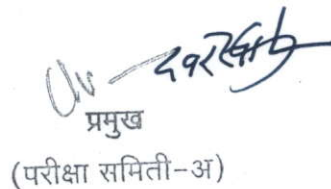 प्रमुख
(परीक्षा समिती-अ)